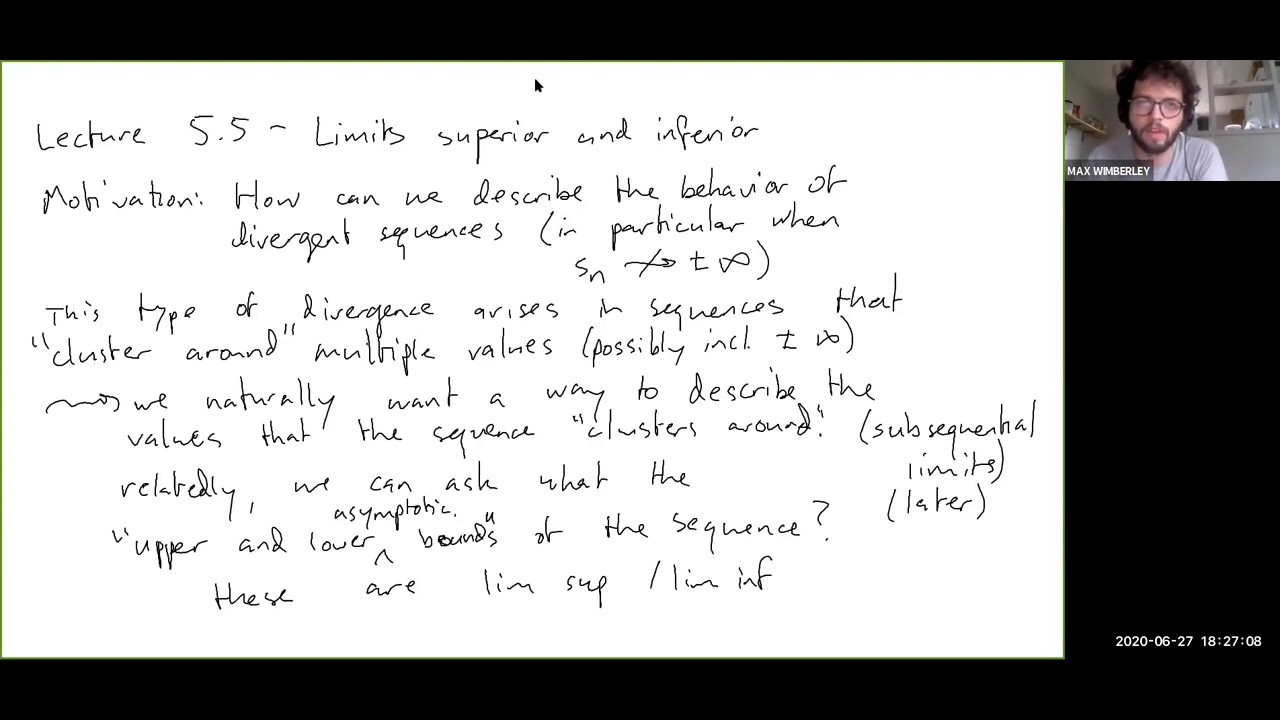 Lecture 5.5 - Limits superior and inferior
Motivation: How can we describe the behavior of
divergent sequences (in particular when
sₙ ↛ ± ∞)
This type of divergence arises in sequences that
"cluster around" multiple values (possibly incl. ± ∞)
⇝ we naturally want a way to describe the
values that the sequence "clusters around". (subsequential
limits)
(later)
relatedly, we can ask what the
asymptotic
"upper and lower ^ bounds" of the sequence?
these are lim sup / lim inf
MAX WIMBERLEY
2020-06-27 18:27:08